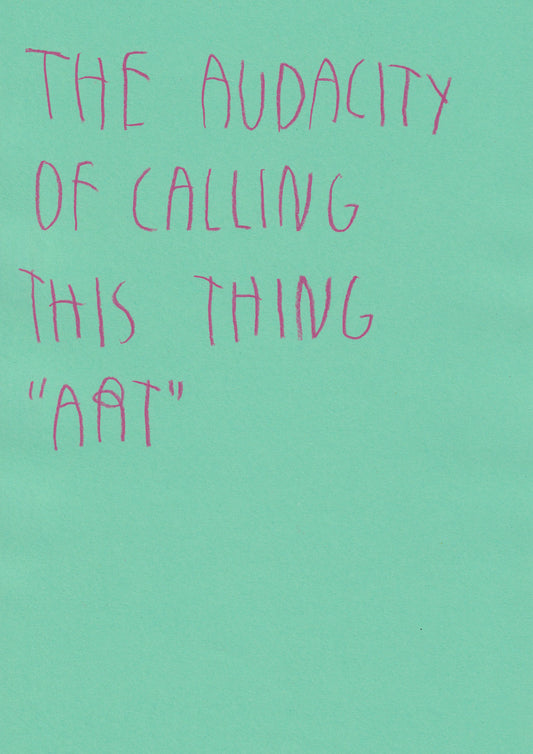 THE AUDACITY
OF CALLING
THIS THING
"ART"